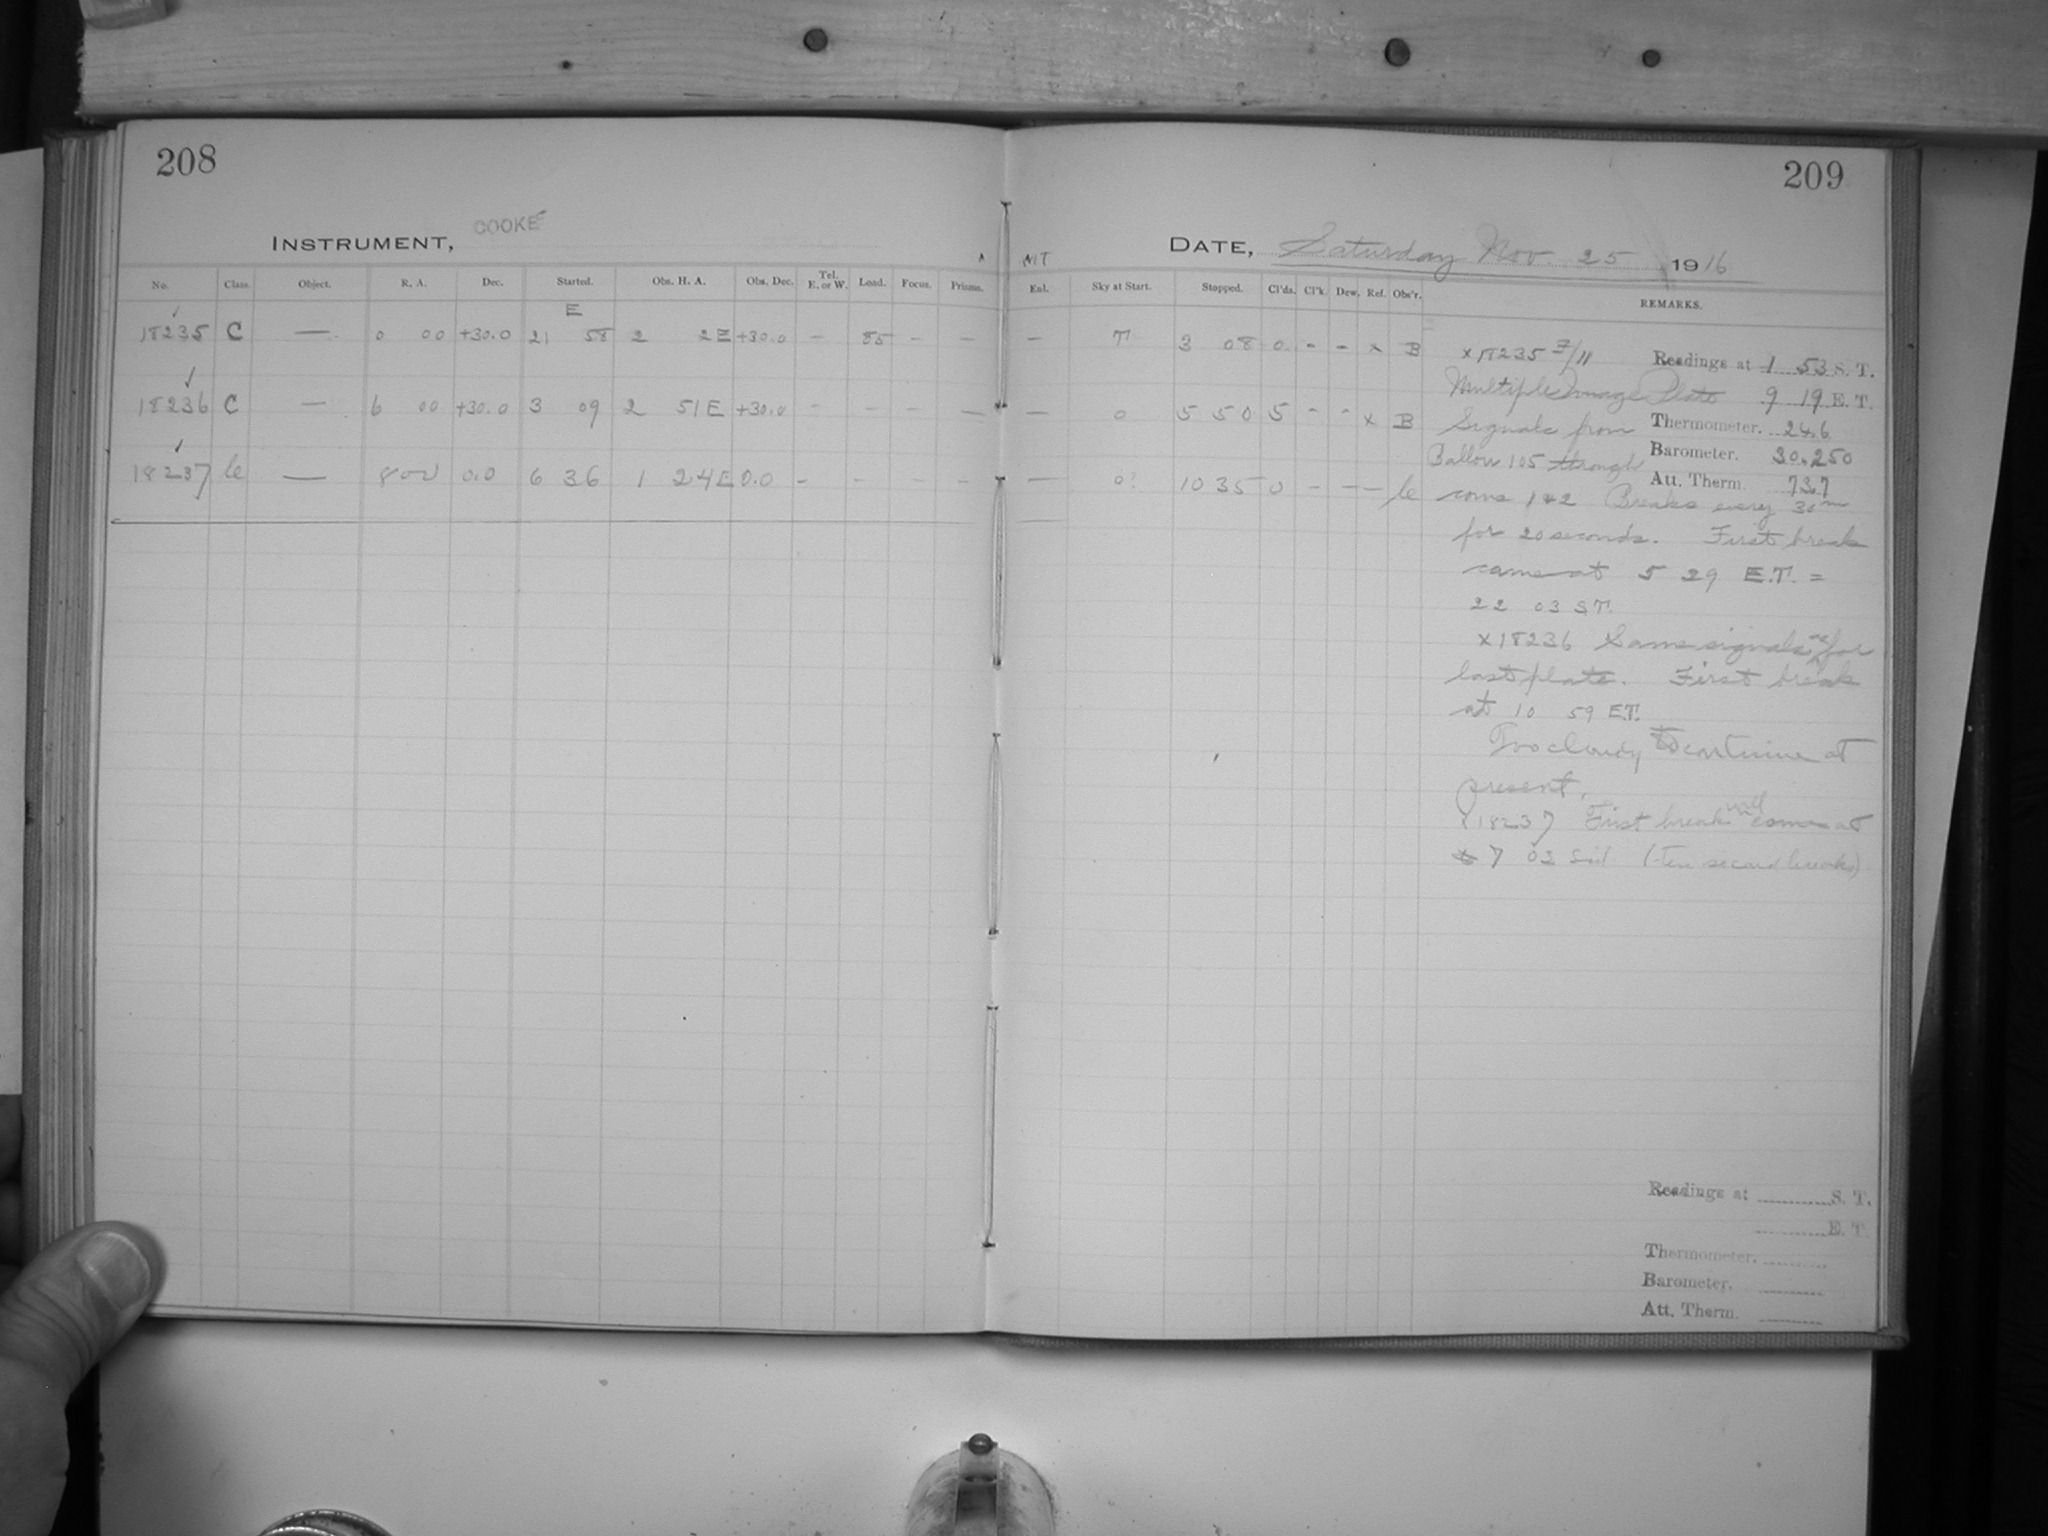 208
INSTRUMENT, COOKE
No. Class. Object. R. A. Dec. Started. Obs. H. A. Obs. Dec. Tel. E. or W. Load. Focus. Prisms.
E
18235 C — 0 00 +30.0 21 58 2 2 E +30.0 - 85 - -
18236 C — 6 00 +30.0 3 09 2 51 E +30.0 - - - -
18237 le — 8 00 0.0 6 36 1 24 E 0.0 - - - -
209
DATE, Saturday Nov. 25 1916
Enl. Sky at Start. Stopped. Cl'ds. Cl'k. Dew. Ref. Obs'r. REMARKS.
— T 3 08 0 - - x B
— 0 5 50 5 - - x B
— 0? 10 35 0 - - - le
x 18235 Readings at 1 53 S. T.
Multiple Image Plate 9 19 E. T.
Signals from Thermometer. 24.6
105 through Barometer. 30.250
Att. Therm. 73.7
1 & 2 Breaks every 30m
for 20 seconds. First break
came at 5 29 E.T. =
22 03 S.T.
x 18236 Same signals as for
last plate. First break
at 10 59 E.T.
Too cloudy to continue at
present.
x 18237 First break will come at
7 02 Sid (ten second breaks)
Readings at S. T.
E. T.
Thermometer.
Barometer.
Att. Therm.